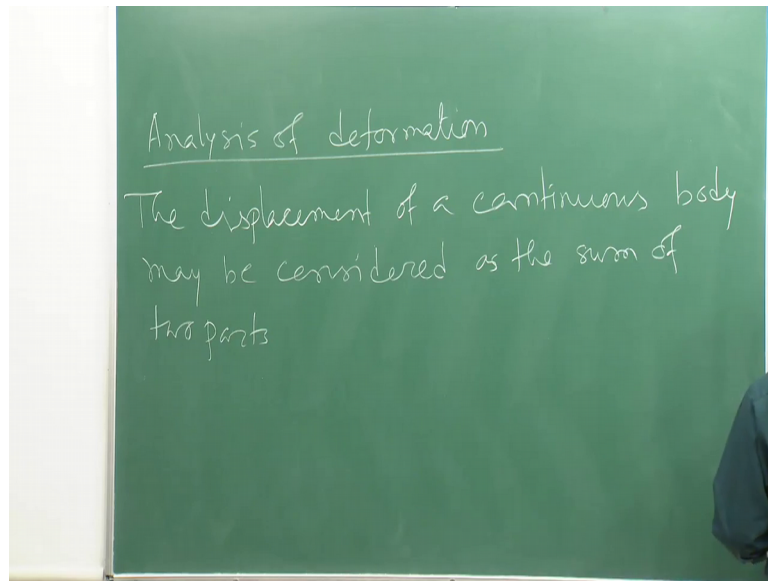 Analysis of deformation
The displacement of a continuous body
may be considered as the sum of
two parts